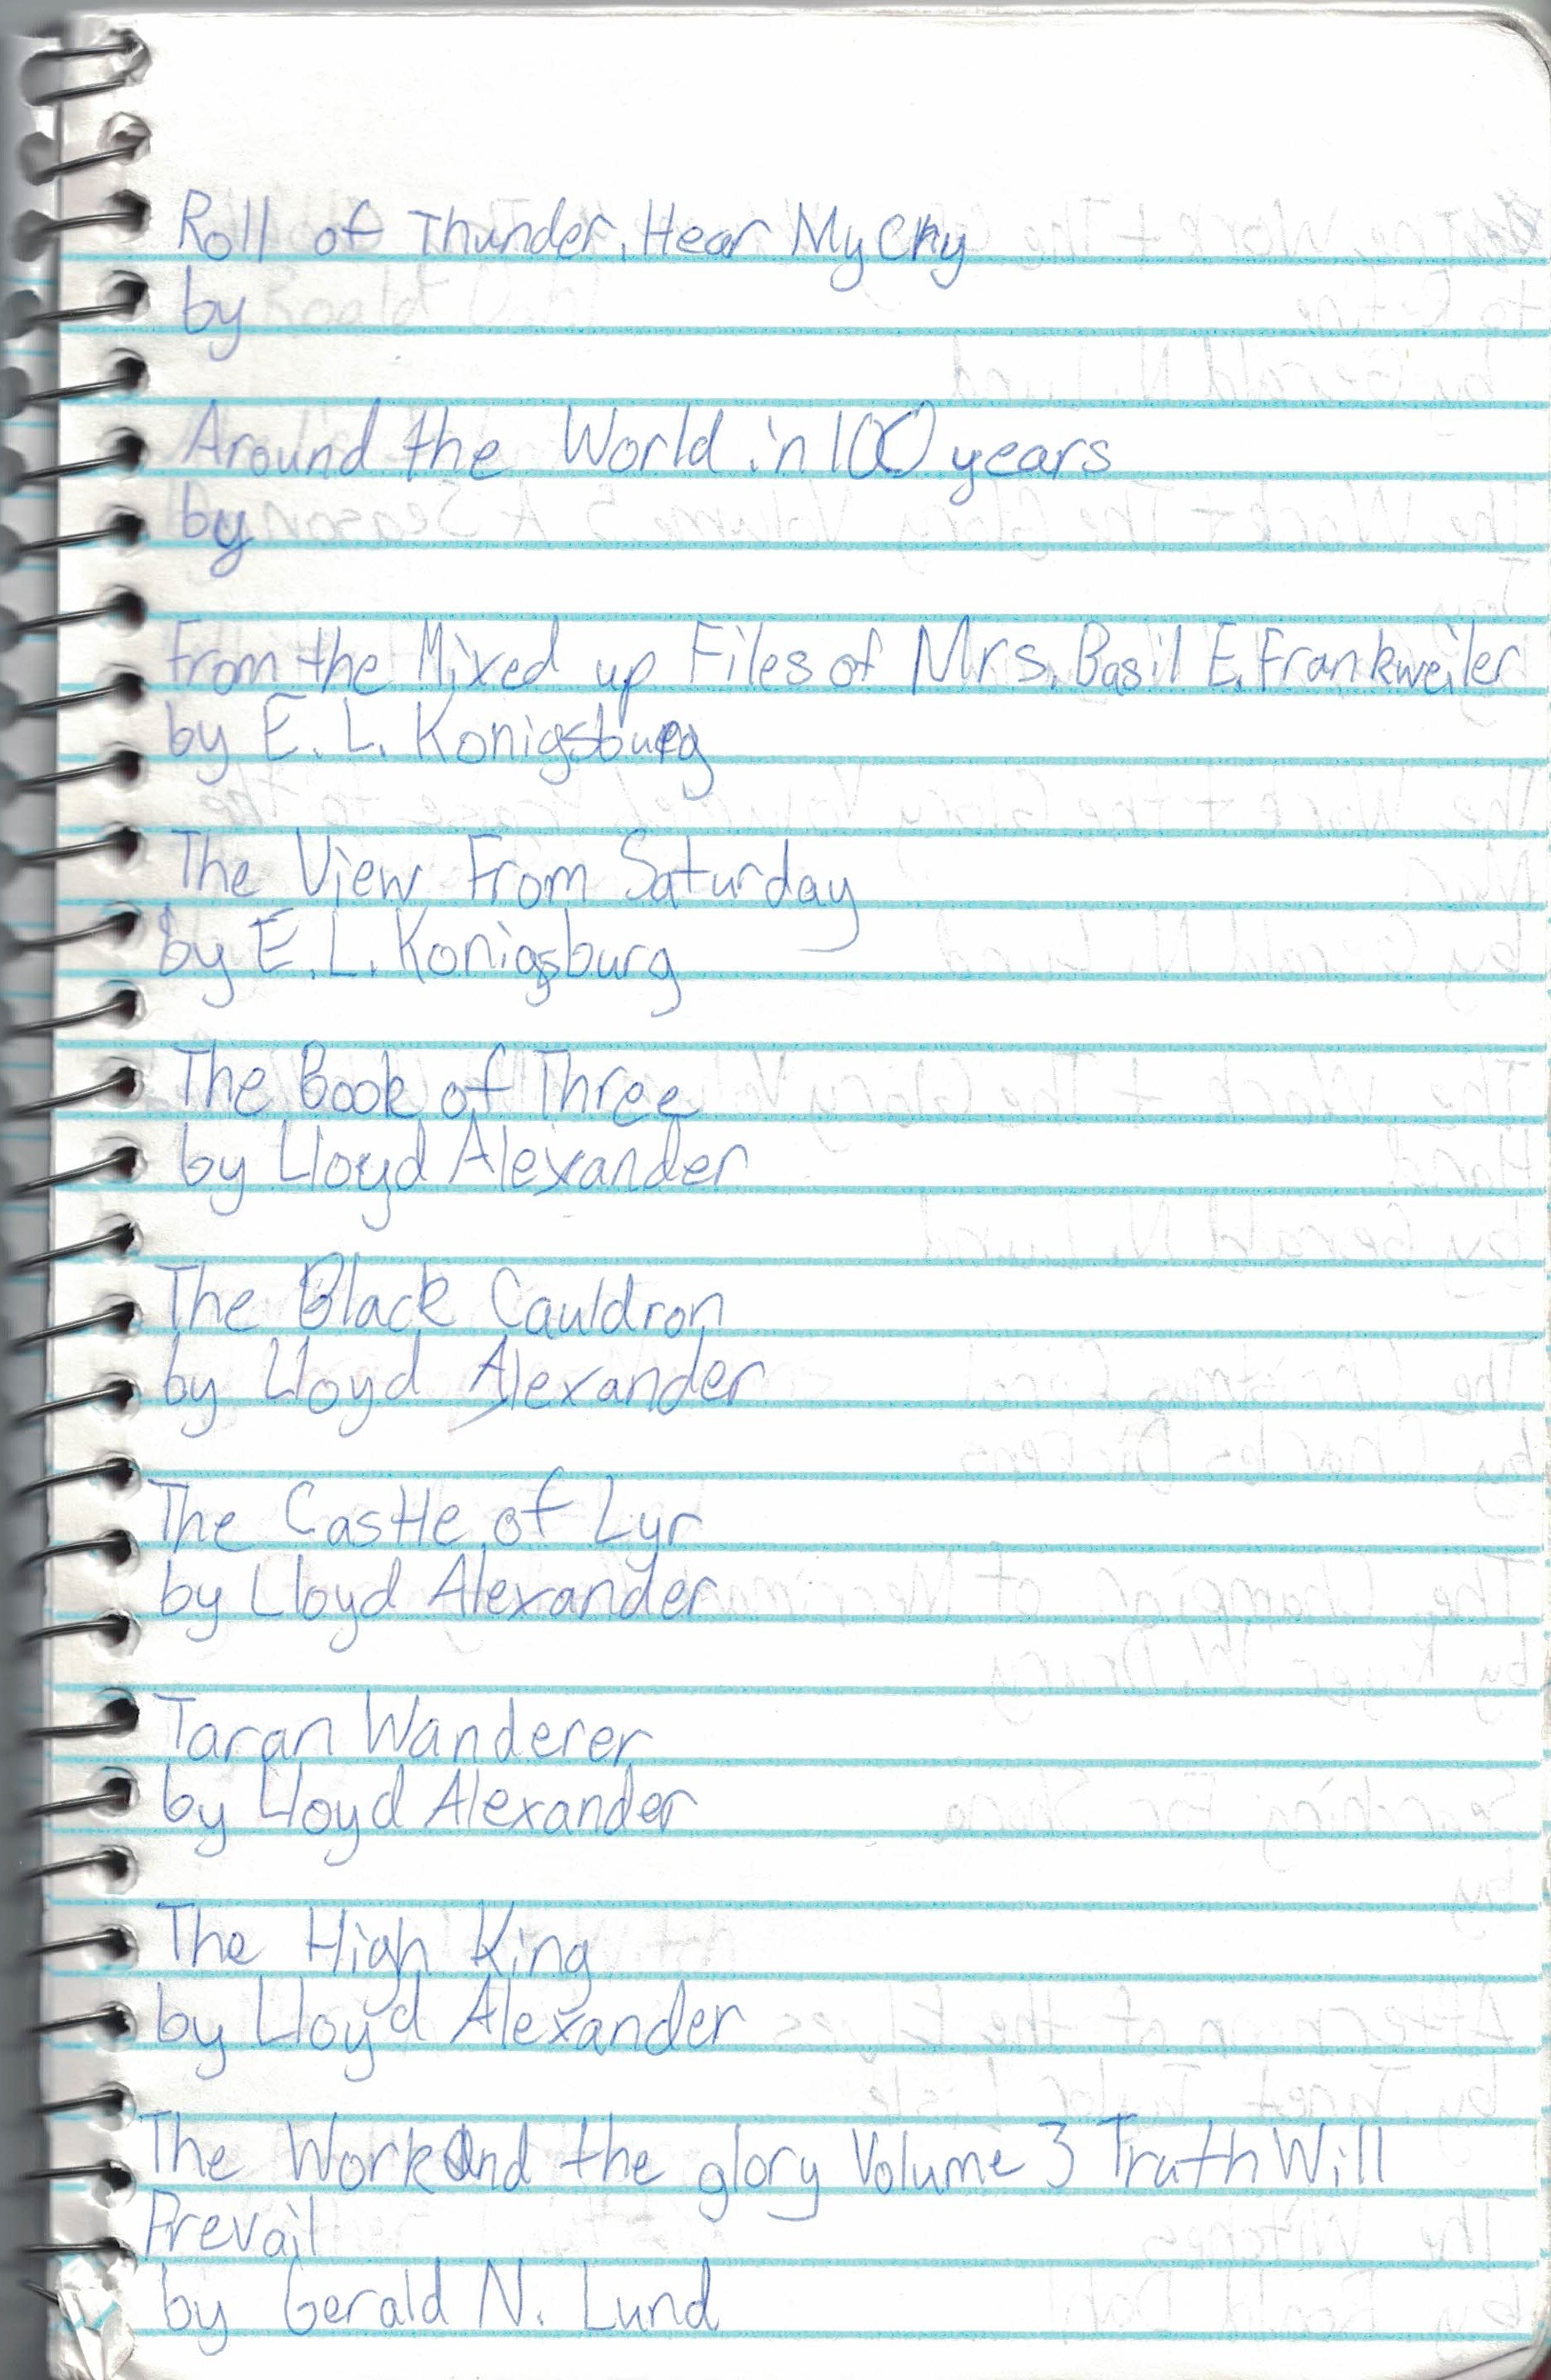 Roll of Thunder, Hear My Cry
by
Around the World in 100 years
by
From the Mixed up Files of Mrs. Basil E. Frankweiler
by E. L. Konigsburg
The View From Saturday
by E. L. Konigsburg
The Book of Three
by Lloyd Alexander
The Black Cauldron
by Lloyd Alexander
The Castle of Lyr
by Lloyd Alexander
Taran Wanderer
by Lloyd Alexander
The High King
by Lloyd Alexander
The Work And the glory Volume 3 Truth Will
Prevail
by Gerald N. Lund